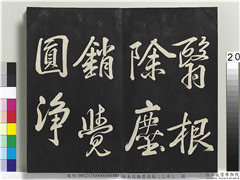 翳根
除塵
銷覺
圓淨
20